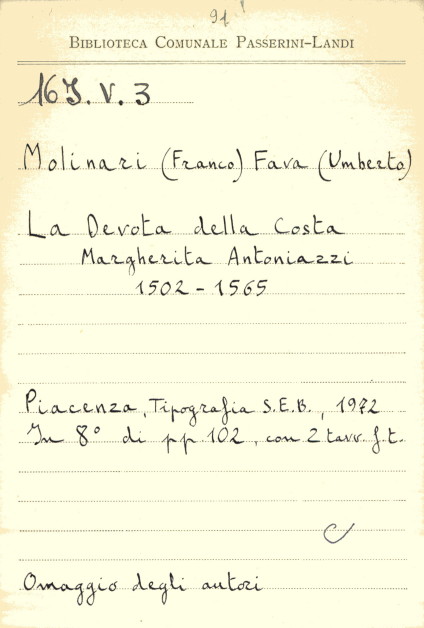 91
BIBLIOTECA COMUNALE PASSERINI-LANDI
16 J. V. 3
Molinari (Franco) Fava (Umberto)
La Devota della Costa
Margherita Antoniazzi
1502 - 1565
Piacenza, Tipografia S.E.B., 1972
In 8° di pp 102, con 2 tavv. f.t.
Omaggio degli autori